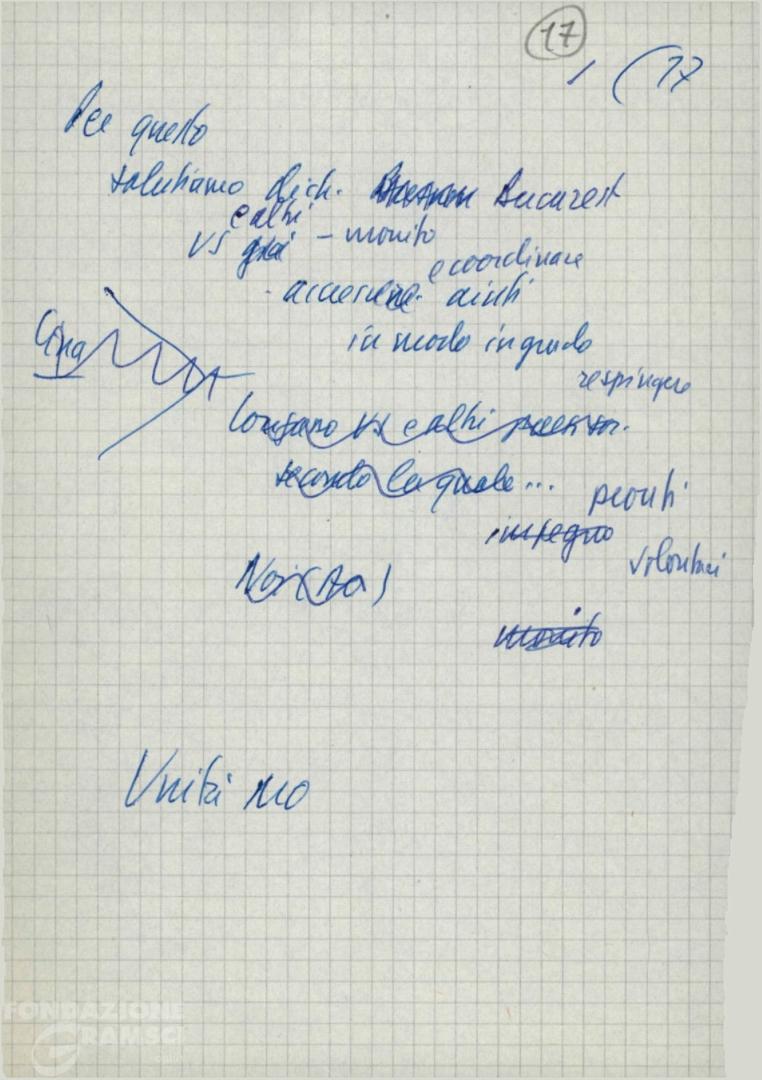 17
1 (17
Per questo
salutiamo dich. Bucarest
e altri
VS già - monito
e coordinare
- accrescere aiuti
in modo in grado
respingere
Cina
VS e altri
secondo la quale ... pronti
impegno
volontari
Noi
monito
Unità mo
FONDAZIONE
GRAMSCI